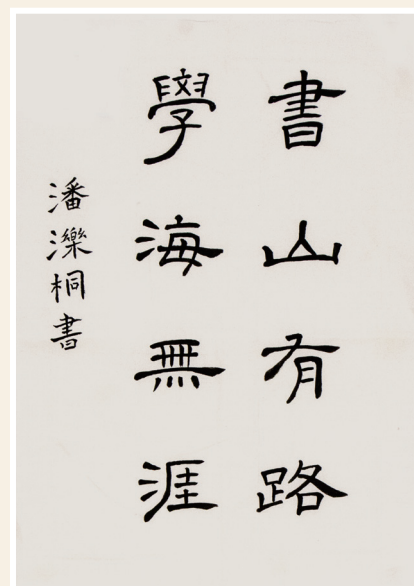 書山有路
學海無涯
潘濼桐書